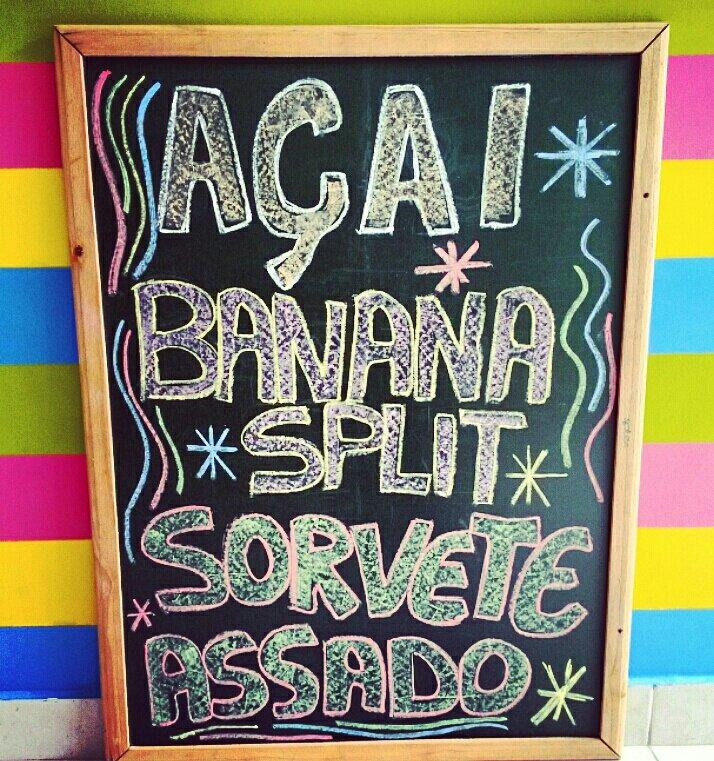 AÇAI
BANANA
SPLIT
SORVETE
ASSADO